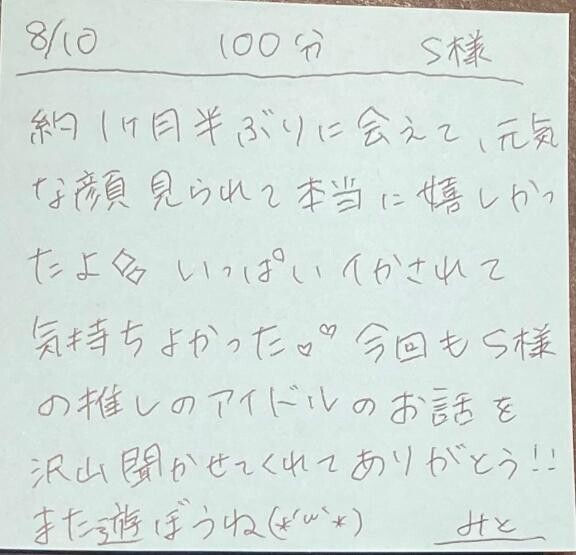 8/10 100分 S様
約1ヶ月半ぶりに会えて、元気
な顔見られて本当に嬉しかっ
たよ いっぱいイかされて
気持ちよかった♡♡ 今回もS様
の推しのアイドルのお話を
沢山聞かせてくれてありがとう!!
また遊ぼうね(*'ω'*) みと